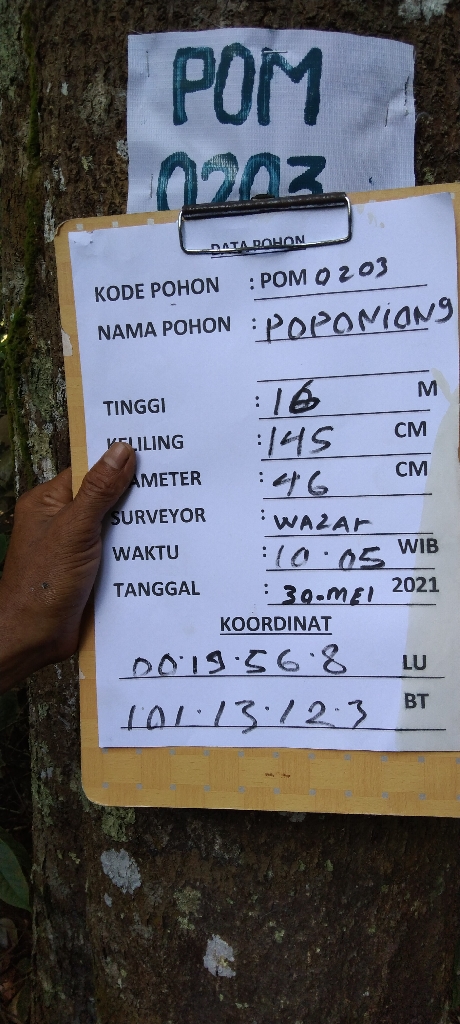 POM
0203
DATA POHON
KODE POHON : POM 0203
NAMA POHON : POPONIONG
TINGGI : 16 M
KELILING : 145 CM
DIAMETER : 46 CM
SURVEYOR : WAZAr
WAKTU : 10.05 WIB
TANGGAL : 30-MEI 2021
KOORDINAT
00.19.56.8 LU
101.13.12.3 BT